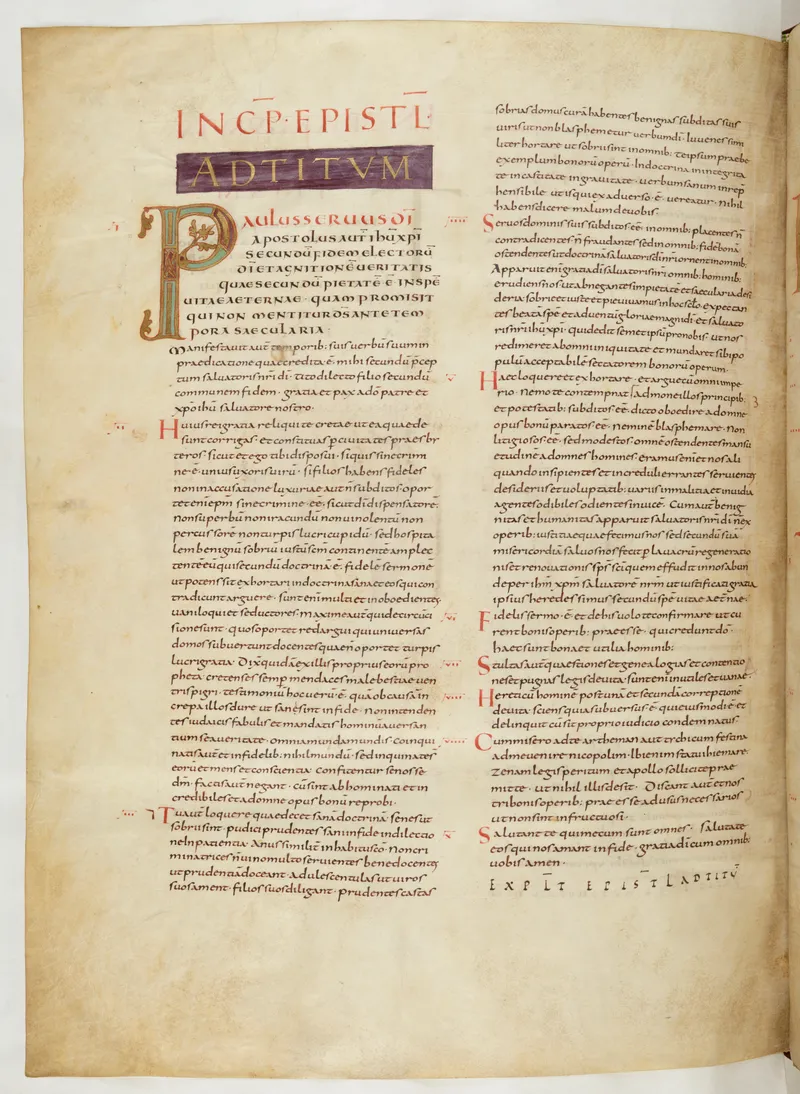 INCP̅·EPISTL̅·
ADTITVM
PAULUSSERUUSDI̅
APOSTOLUSAUT̅IHUXPI̅
SECUNDU̅FIDEMELECTORU̅
DIETAGNITIONE̅UERITATIS
QUAESECUNDU̅PIETATE̅E̅INSPE̅
UITAEAETERNAE·QUAMPROMISIT
QUINONMENTITURDSANTETEM
PORASAECULARIA·
Manifestauit aut̅ temporib: suis uerbu̅ suum in
praedicatione quae credita e̅ mihi secundu̅ p̅cep
tum saluatoris nr̅i di̅· tito dilecto filio secundu̅
communem fidem· gratia et pax a do̅ patre et
xpo̅ ihu̅ saluatore nostro·
Huius rei gratia reliqui te cretae ut ea quae de
sunt corrigas· et constituas p̅ ciuitates praesby
teros· sicut et ego tibi disposui· siquis sine crim
ne· e̅· unius uxoris uir̅u· filios habens fideles
non in accusatione luxuriae aut n̅ subditos· opor
tet eni̅ ep̅m sine crimine· ee̅· sicut di̅ dispensatore̅·
Non superbu̅ non iracundu̅ non uinolentu̅ non
percussore̅ non turpis lucri cupidu̅· sed hospita
lem benignu̅ sobriu̅ iustu̅ sc̅m continente̅ amplec
tente̅ eu̅ qui secundu̅ doctrina̅· e̅· fidele̅ sermone̅
ut potens sit exhortari in doctrina sana et eos qui con
tradicunt arguere· sunt eni̅ multi et inoboedientes
uaniloqui et seductores· maxime aut̅ qui de circu̅ci
sione sunt· quos oportet redargui qui uniuersas
domos subuertunt docentes quae n̅ oportet turpis
lucri gratia· Dixit quida̅ ex illis proprius eoru̅ pro
pheta· cretenses semp̅ mendaces malae bestiae uen
tris pigri· testimoniu̅ hoc ueru̅· e̅· qua̅ ob causa̅ in
crepa illos dure ut sani sint in fide· non intenden
tes iudaicis fabulis et mandatis hominu̅ auersan
tium se a ueritate· omnia munda mundis· coinqui
natis aut̅ et infidelib: nihil mundu̅· sed inquinatae s̅
eoru̅ et mens et conscientia· confitentur se nosse
dm̅· factis aut̅ negant· cu̅ sint abhominati et in
credibiles et ad omne opus bonu̅ reprobi·
Tu aut̅ loquere quae decet sana̅ doctrina̅· senes ut
sobrii sint· pudici prudentes sani in fide in dilectio
ne in patientia· Anus similit̅ in habitu sc̅o· non cri
minatrices n̅ uino multo seruientes bene docentes
ut prudentia̅ doceant· adulescentulas ut uiros
suos ament· filios suos diligant· prudentes castas
sobrias domus cura̅ habentes benignas subditas suis
uiris ut non blasphemetur uerbum di̅· Iuuenes simi
liter hortare ut sobrii sint· in omnib: te ipsum praebe
exemplum bonoru̅ operu̅· In doctrina in integrita
te in castitate in grauitate· uerbum sanum inrep̅
hensibile· ut is qui ex aduerso· e̅· uereatur· nihil
habens dicere malum de uobis·
Seruos dominis suis subditos ee̅· in omnib: placentes n̅
contradicentes n̅ fraudantes sed in omnib: fide̅ bona̅
ostendentes ut doctrina̅ saluatoris nr̅i di̅ ornent in omnib:
Apparuit eni̅ gratia di̅ saluatoris nr̅i omnib: hominib:
erudiens nos ut abnegantes impietate̅ et saecularia desi
deria· sobrie et iuste et pie uiuamus in hoc sc̅lo· expectan
tes beata̅ spe̅ et aduentu̅ gloriae magni di̅· et saluato
ris nr̅i ihu̅ xpi̅· qui dedit semet ipsu̅ pro nobis· ut nos
redimeret ab omni iniquitate· et mundaret sibi po
pulu̅ acceptabile̅ sectatorem bonoru̅ operum·
Haec loquere et exhortare· et argue cu̅ omni impe
rio· Nemo te contemnat· admone illos principib:
et potestatib: subditos ee̅· dicto oboedire ad omne
opus bonu̅ paratos ee̅· nemine̅ blasphemare· non
litigiosos ee̅· sed modestos· omne̅ ostendentes mansu
etudine̅ ad omnes homines· eramus eni̅ et nos ali
quando insipientes et increduli errantes seruientes
desideriis et uoluptatib: uariis in malitia et inuidia
agentes odibiles odientes inuice̅· Cum aut̅ benig
nitas et humanitas apparuit saluatoris nr̅i di̅ n̅ ex
operib: iustitiae quae fecimus nos· sed secundu̅ sua̅
misericordia̅ saluos nos fecit p̅ lauacru̅ regeneratio
nis et renouationis sp̅s sc̅i· quem effudit in nos abun
de per ihm̅ xpm̅ saluatore̅ nr̅m· ut iustificati gratia
ipsius heredes simus secundu̅ spe̅ uitae aet̅nae·
Fidelis sermo· e̅· et de his uolo te confirmare· ut cu
rent bonis operib: praeesse· qui credunt do̅·
haec sunt bona et utilia hominib:
Stultas aut̅ quaestiones et genealogias et contentio
nes et pugnas legis deuita· sunt eni̅ inutiles et uanae·
Hereticu̅ homine̅ post una̅ et secunda̅ correptione̅
deuita· sciens quia subuersus· e̅· qui eiusmodi· e̅· et
delinquit cu̅ sit proprio iudicio condemnatus·
Cum misero ad te artheman aut tychicum festina
ad me uenire nicopolim· Ibi eni̅ statui hiemare·
Zenam legis peritum et apollo sollicite prae
mitte· ut nihil illis desit· Discant aut̅ et nos
tri bonis operib: praeesse ad usus necessarios
ut non sint infructuosi·
Salutant te qui mecum sunt omnes· salutate
eos qui nos amant in fide· gratia di̅ cum omnib:
uobis amen·
EXPLI̅T EPISTL̅ADTITU̅